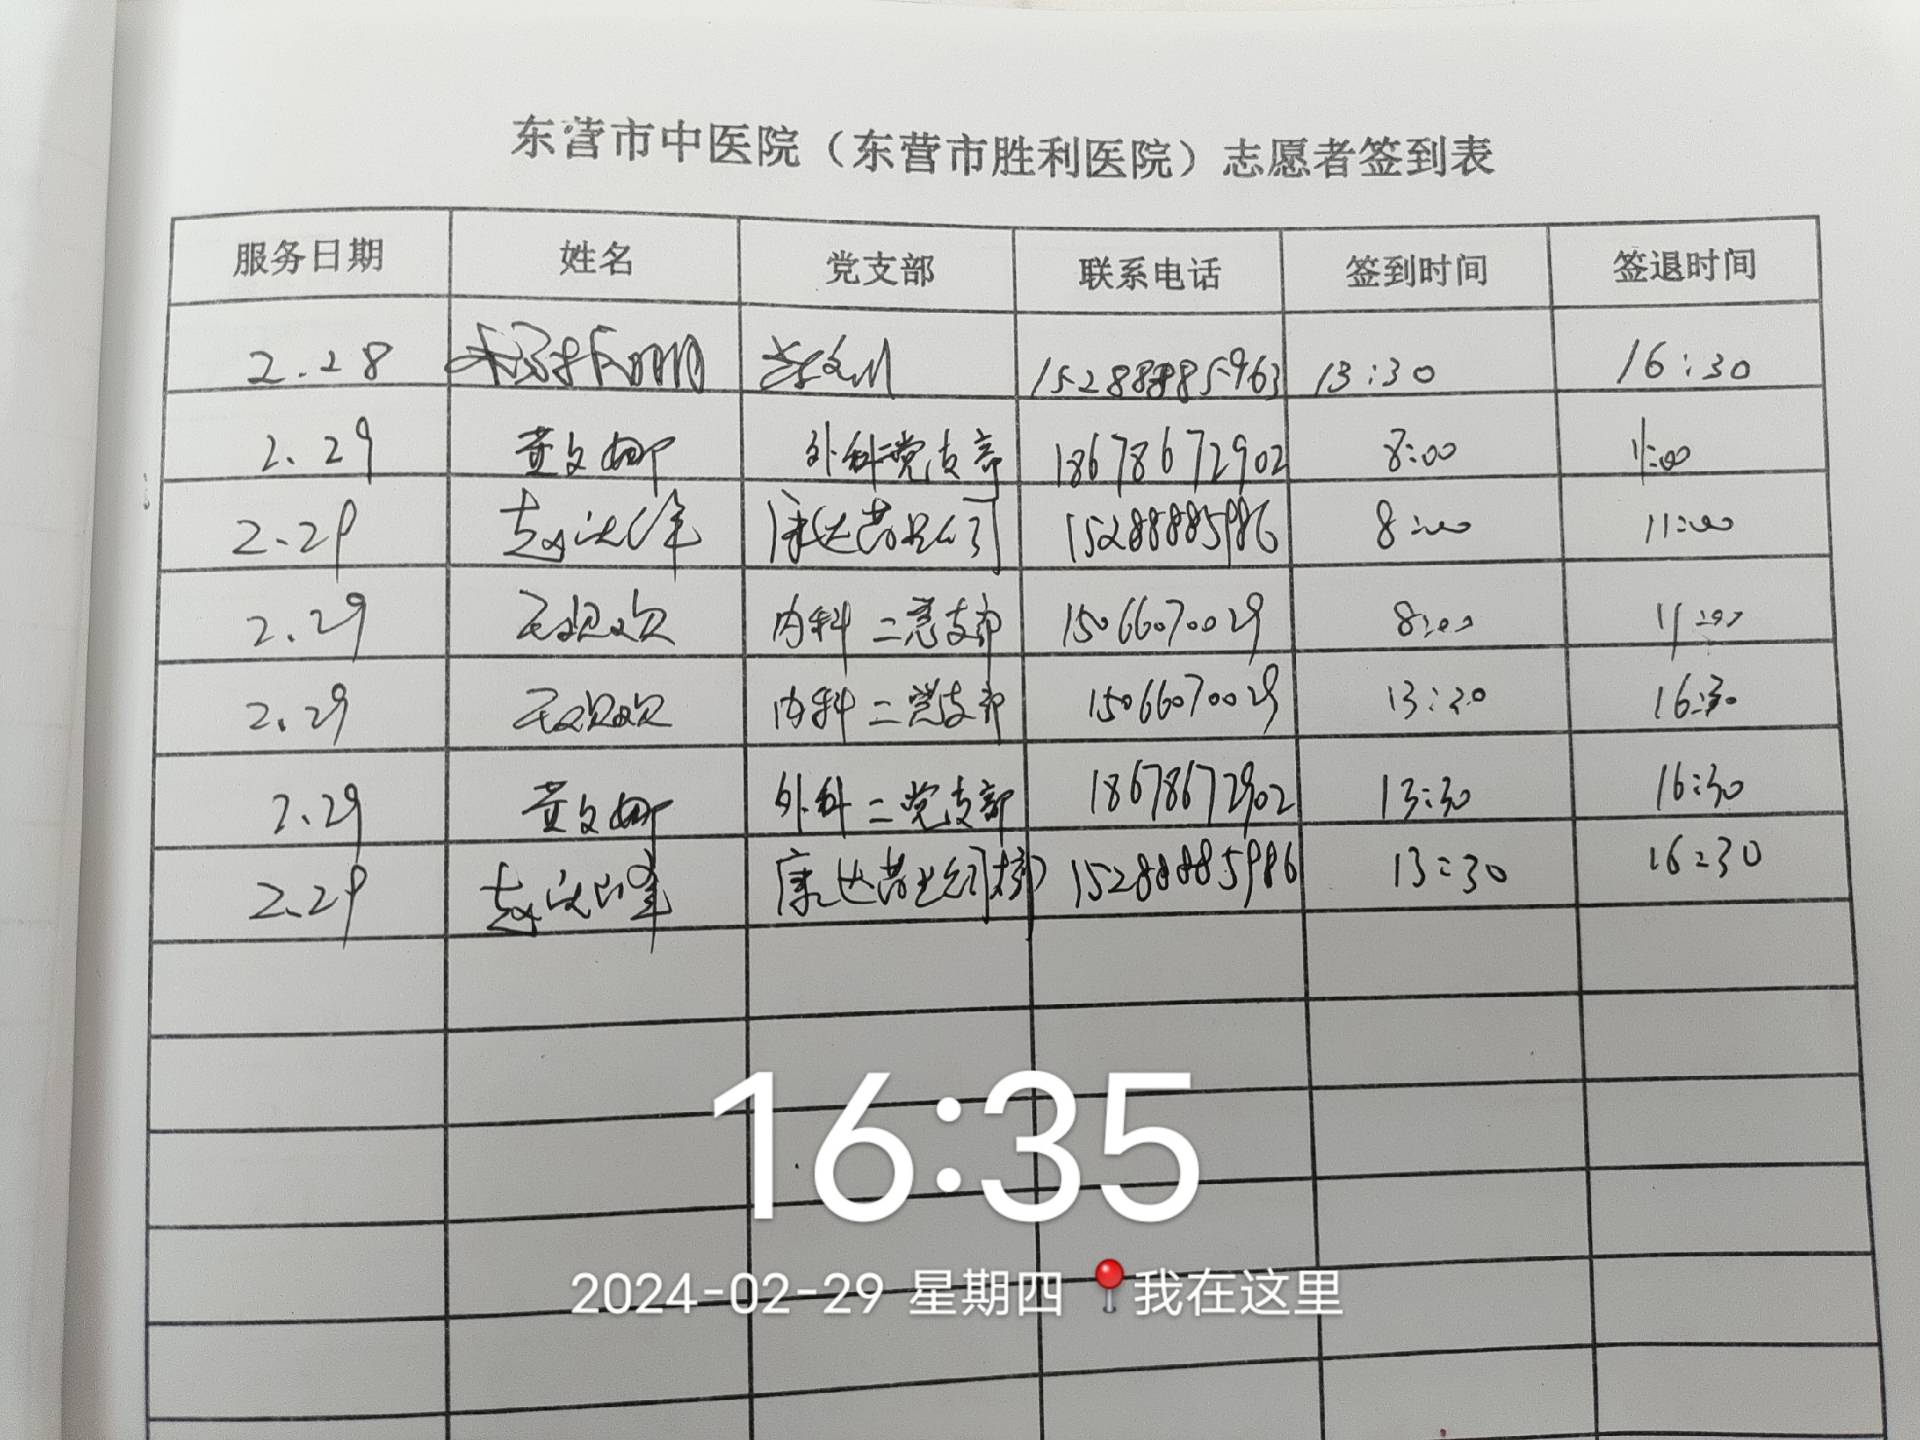 东营市中医院（东营市胜利医院）志愿者签到表
服务日期 姓名 党支部 联系电话 签到时间 签退时间
2.28 15288885963 13:30 16:30
2.29 黄文娜 外科二党支部 18678672902 8:00 11:00
2.29 赵 峰 康达药业公司 15288885986 8:00 11:00
2.29 王欢欢 内科二党支部 15066070029 8:00 11:00
2.29 王欢欢 内科二党支部 15066070029 13:30 16:30
2.29 黄文娜 外科二党支部 18678672902 13:30 16:30
2.29 赵 峰 康达药业公司 15288885986 13:30 16:30
16:35
2024-02-29 星期四 📍我在这里